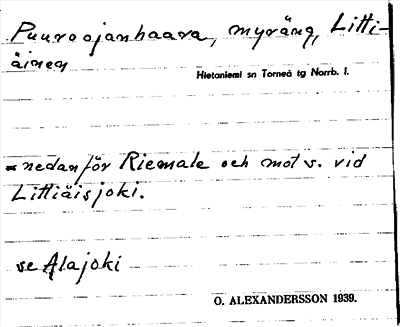 Puuraojanhaara, myräng, Litti-
äinen
Hietaniemi sn Torneå tg Norrb. l.
= nedanför Riemale och mot s. vid
Littiäisjoki.
se Alajoki
O. ALEXANDERSSON 1939.